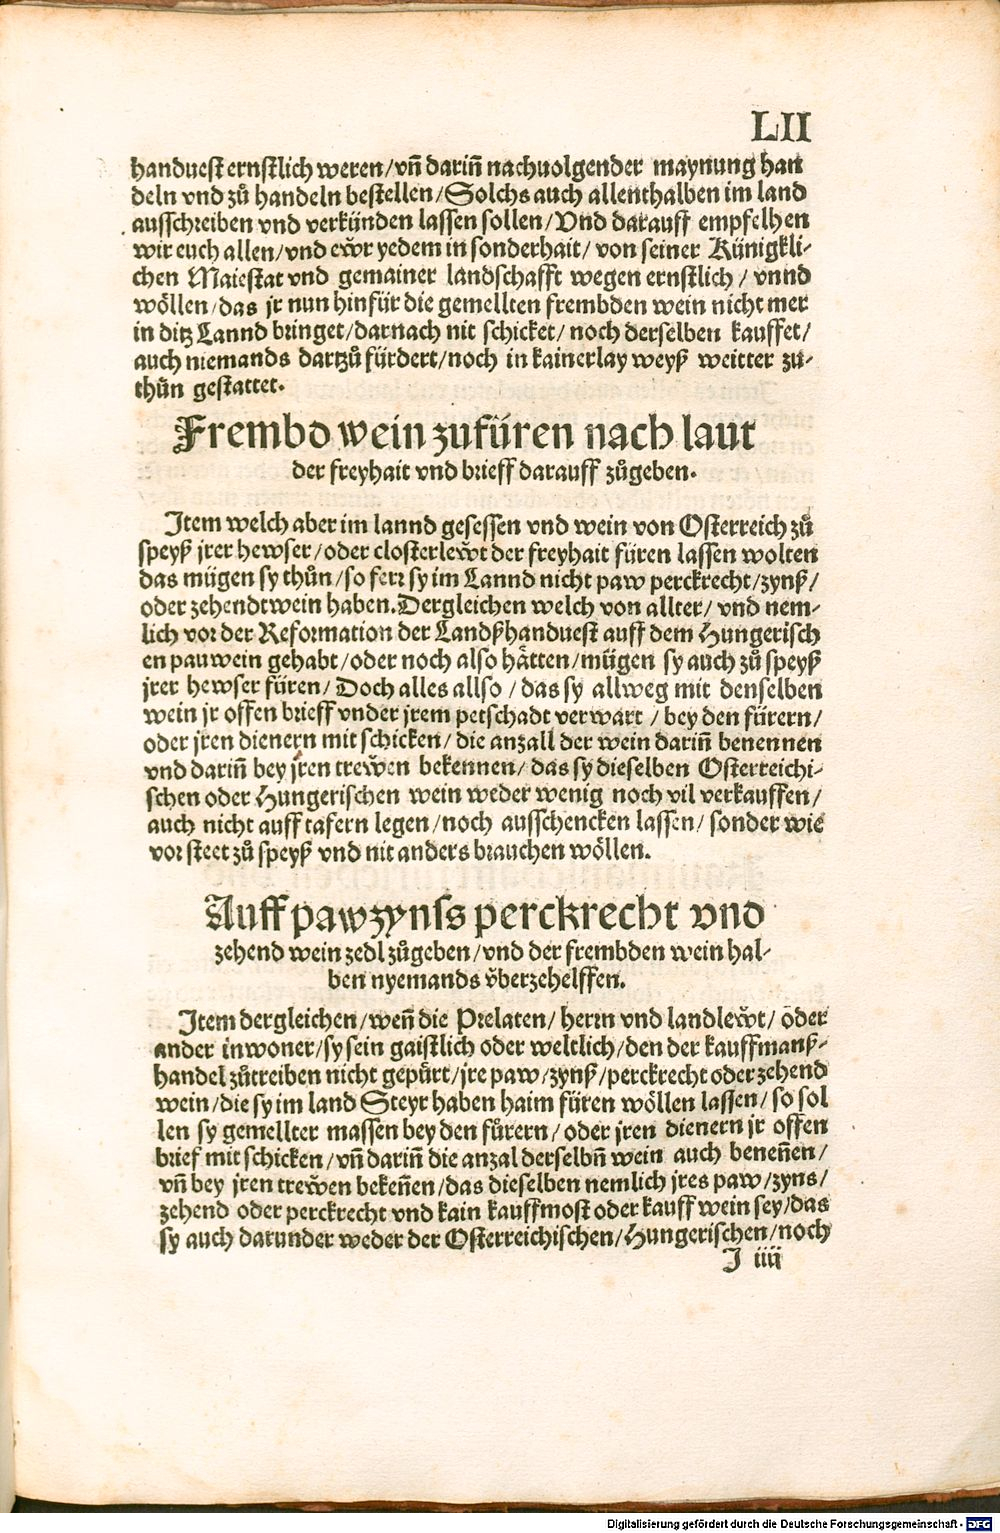 LII
handuest ernstlich weren/ vn̄ darin̄ nachuolgender maynung han
deln vnd zů handeln bestellen/ Solchs auch allenthalben im land
ausschreiben vnd verkünden lassen sollen/ Vnd darauff empfelhen
wir euch allen/ vnd ewr yedem in sonderhait/ von seiner Künigkli-
chen Maiestat vnd gemainer landschafft wegen ernstlich/ vnnd
wöllen/ das jr nun hinfür die gemellten frembden wein nicht mer
in ditz Lannd bringet/ darnach nit schicket/ noch derselben kauffet/
auch niemands dartzů fürdert/ noch in kainerlay weyß weitter zu-
thůn gestattet.
Frembd wein zufüren nach laut
der freyhait vnd brieff darauff zůgeben.
Item welch aber im lannd gesessen vnd wein von Osterreich zů
speyß jrer hewser/ oder closterlewt der freyhait füren lassen wolten
das mügen sy thůn/ so ferr sy im Lannd nicht paw perckrecht/ zynß/
oder zehendtwein haben. Dergleichen welch von allter/ vnd nem-
lich vor der Reformation der Landßhanduest auff dem Hungerisch
en pauwein gehabt/ oder noch also hätten/ mügen sy auch zů speyß
jrer hewser füren/ Doch alles allso/ das sy allweg mit denselben
wein jr offen brieff vnder jrem petschadt verwart/ bey den fürern/
oder jren dienern mit schicken/ die anzall der wein darin̄ benennen
vnd darin̄ bey jren trewen bekennen/ das sy dieselben Osterreichi-
schen oder Hungerischen wein weder wenig noch vil verkauffen/
auch nicht auff tafern legen/ noch ausschencken lassen/ sonder wie
vor steet zů speyß vnd nit anders brauchen wöllen.
Auff paw zynss perckrecht vnd
zehend wein zedl zůgeben/ vnd der frembden wein hal-
ben nyemands vberzehelffen.
Item dergleichen/ wen̄ die Prelaten/ herrn vnd landlewt/ oder
ander inwoner/ sy sein gaistlich oder weltlich/ den der kauffmanß-
handel zůtreiben nicht gepürt/ jre paw/ zynß/ perckrecht oder zehend
wein/ die sy im land Steyr haben haim füren wöllen lassen/ so sol
len sy gemellter massen bey den fürern/ oder jren dienern jr offen
brief mit schicken/ vn̄ darin̄ die anzal derselbn̄ wein auch benen̄en/
vn̄ bey jren trewen beken̄en/ das dieselben nemlich jres paw/ zyns/
zehend oder perckrecht vnd kain kauffmost oder kauff wein sey/ das
sy auch darunder weder der Osterreichischen/ Hungerischen/ noch
J iiij
Digitalisierung gefördert durch die Deutsche Forschungsgemeinschaft - DFG